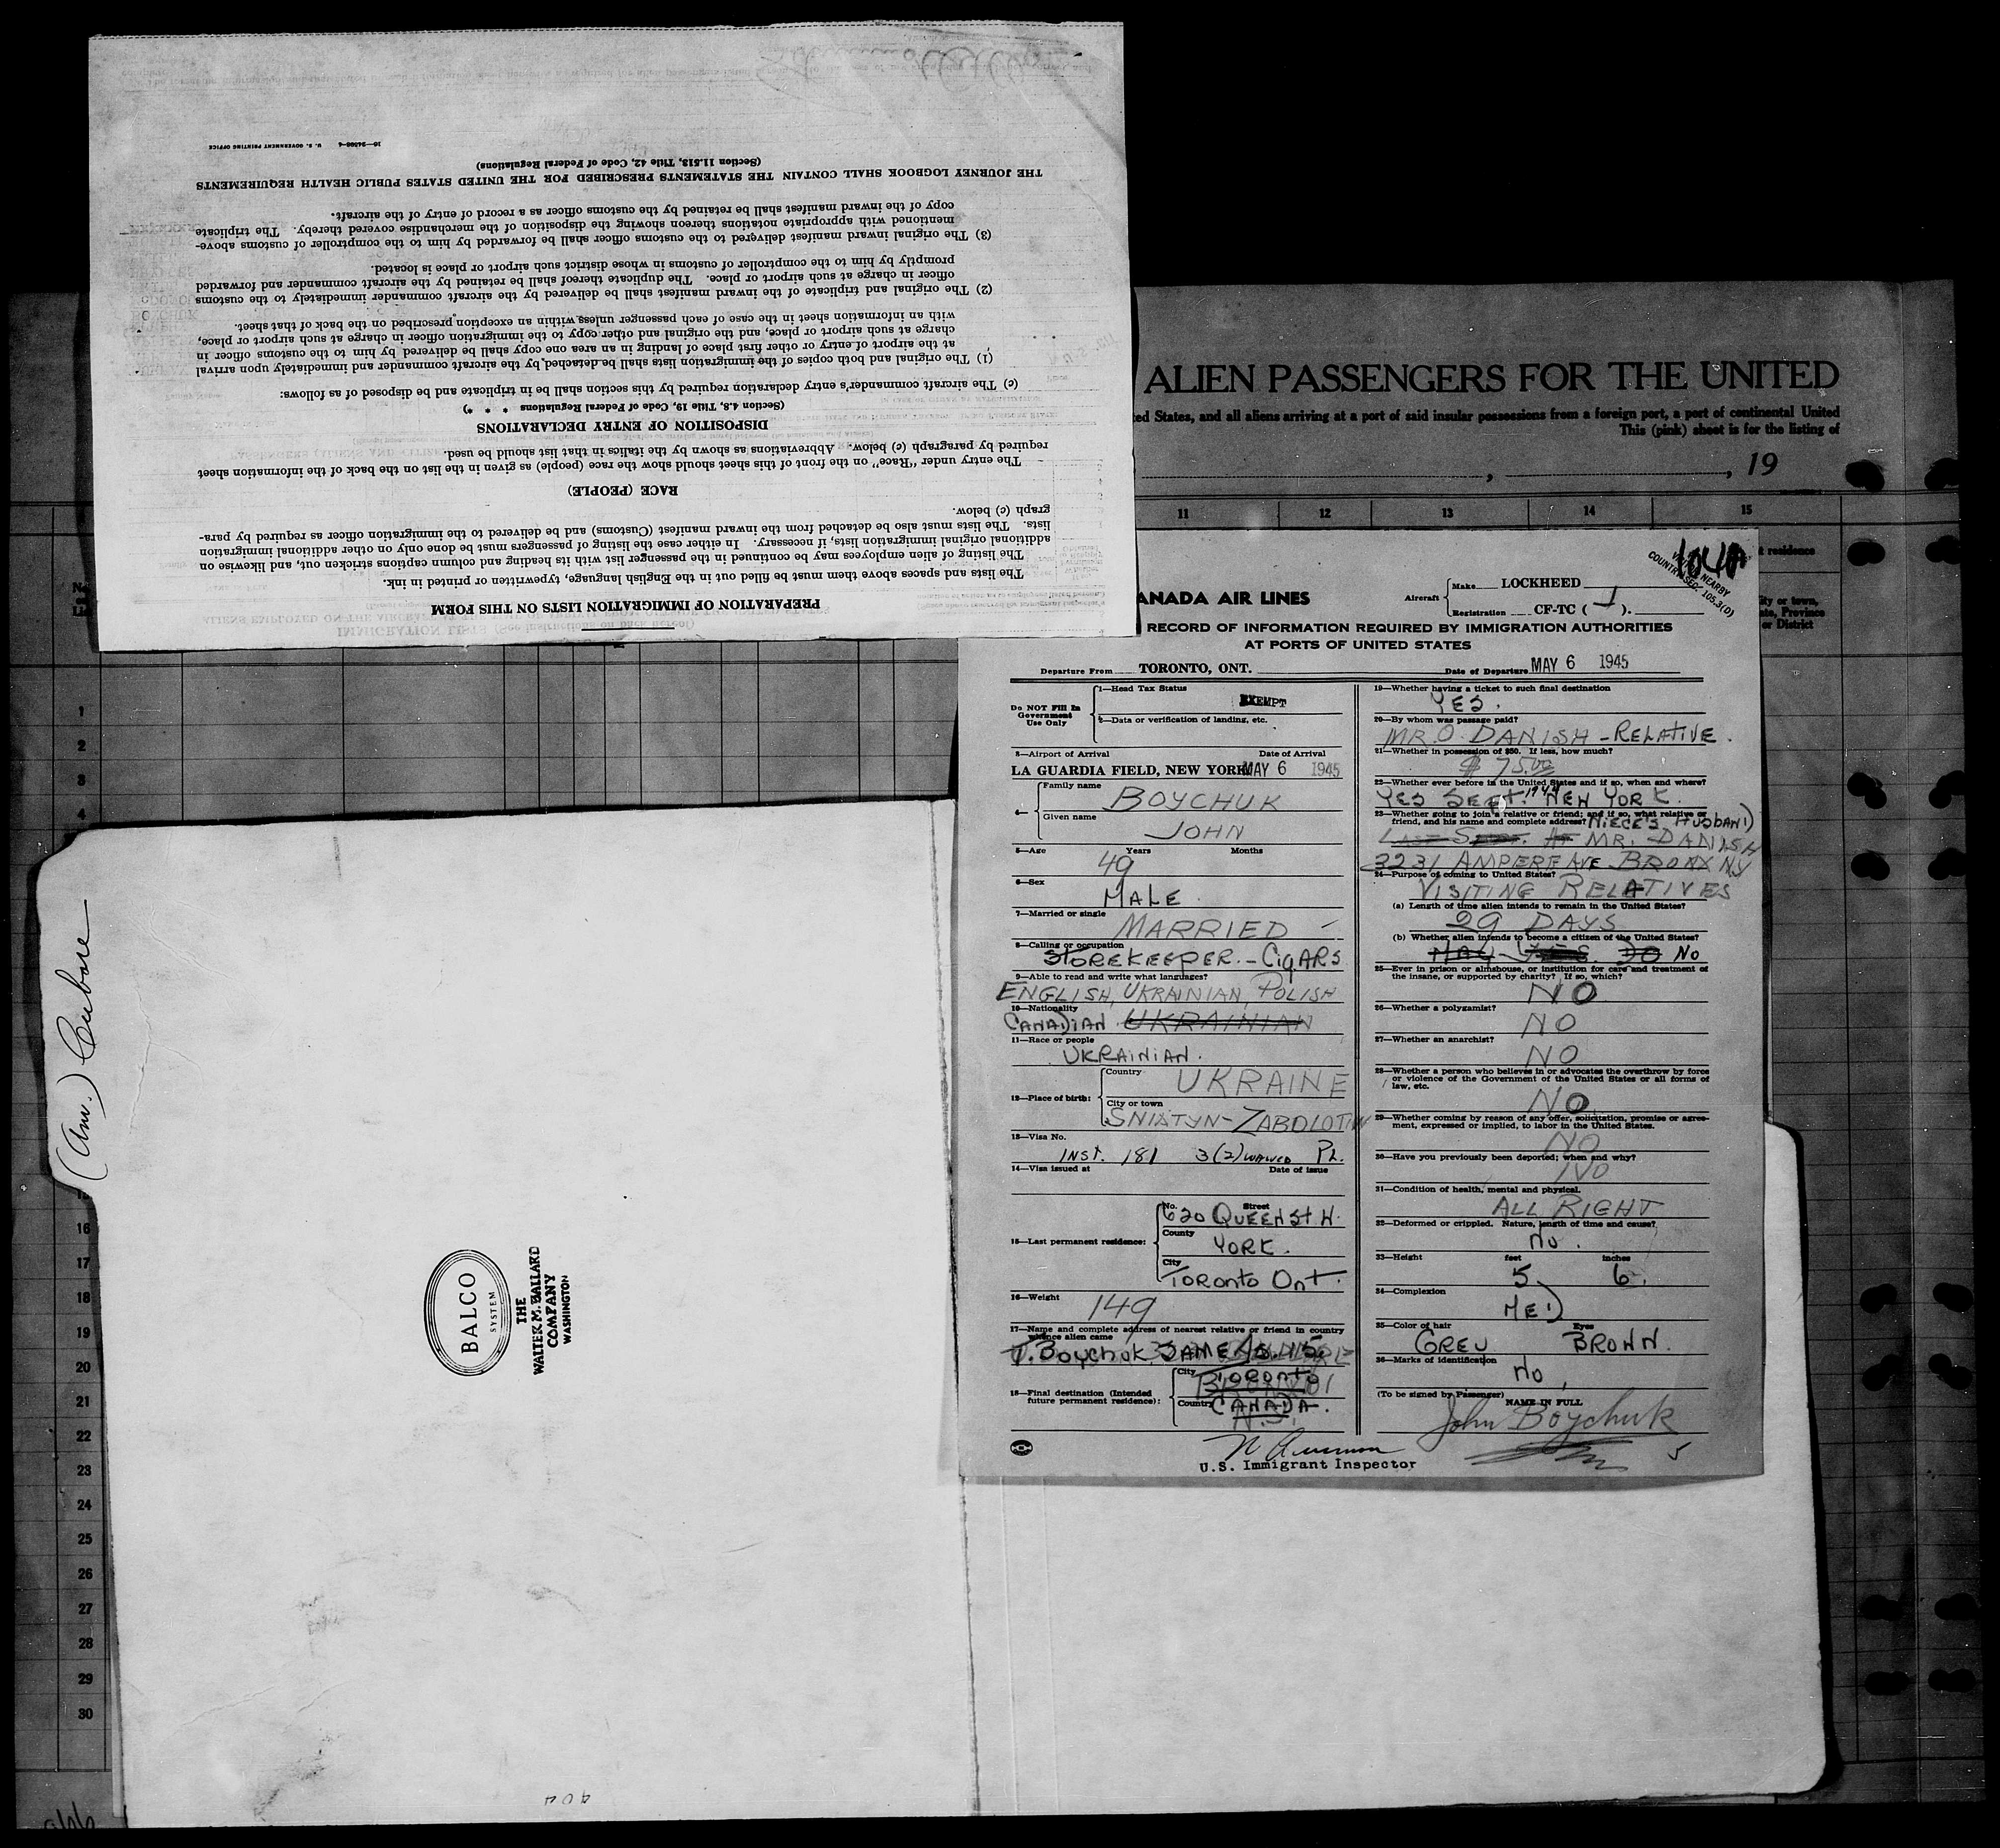 PREPARATION OF IMMIGRATION LISTS ON THIS FORM
The lists and spaces above them must be filled out in the English language, typewritten or printed in ink.
The listing of alien employees may be continued in the passenger list with its heading and column captions stricken out, and likewise on
additional original immigration lists, if necessary. In either case the listing of passengers must be done only on other additional immigration
lists. The lists must also be detached from the inward manifest (Customs) and be delivered to the immigration officer as required by para-
graph (c) below.
RACE (PEOPLE)
The entry under "Race" on the front of this sheet should show the race (people) as given in the list on the back of the information sheet
required by paragraph (c) below. Abbreviations as shown by the italics in that list should be used.
DISPOSITION OF ENTRY DECLARATIONS
(Section 4.8, Title 19, Code of Federal Regulations * * *)
(c) The aircraft commander's entry declaration required by this section shall be in triplicate and be disposed of as follows:
(1) The original and both copies of the immigration lists shall be detached by the aircraft commander and immediately upon arrival
at the airport of entry or other first place of landing in an area one copy shall be delivered by him to the customs officer in
charge at such airport or place, and the original and other copy to the immigration officer in charge at such airport or place,
with an information sheet in the case of each passenger unless within an exception prescribed on the back of that sheet.
(2) The original and triplicate of the inward manifest shall be delivered by the aircraft commander immediately to the customs
officer in charge at such airport or place. The duplicate thereof shall be retained by the aircraft commander and forwarded
promptly by him to the comptroller of customs in whose district such airport or place is located.
(3) The original inward manifest delivered to the customs officer shall be forwarded by him to the comptroller of customs above-
mentioned with appropriate notations thereon showing the disposition of the merchandise covered thereby. The triplicate
copy of the inward manifest shall be retained by the customs officer as a record of entry of the aircraft.
THE JOURNEY LOGBOOK SHALL CONTAIN THE STATEMENTS PRESCRIBED FOR THE UNITED STATES PUBLIC HEALTH REQUIREMENTS
(Section 11.513, Title 42, Code of Federal Regulations)
U. S. GOVERNMENT PRINTING OFFICE
ALIEN PASSENGERS FOR THE UNITED
ted States, and all aliens arriving at a port of said insular possessions from a foreign port, a port of continental United
This (pink) sheet is for the listing of
, , 19
11 12 13 14 15
residence
ity or town,
te, Province
or District
ANADA AIR LINES
Aircraft
Make LOCKHEED
Registration CF-TC ( J ).
NEARBY
COUNTRY SEC. 105.3(D)
RECORD OF INFORMATION REQUIRED BY IMMIGRATION AUTHORITIES
AT PORTS OF UNITED STATES
Departure From TORONTO, ONT. Date of Departure MAY 6 1945
Do NOT Fill In
Government
Use Only
1—Head Tax Status EXEMPT
2—Data or verification of landing, etc.
3—Airport of Arrival Date of Arrival
LA GUARDIA FIELD, NEW YORK MAY 6 1945
4— Family name BOYCHUK
Given name JOHN
5—Age Years Months
49
6—Sex
MALE
7—Married or single
MARRIED
8—Calling or occupation
STOREKEEPER - CIGARS
9—Able to read and write what languages?
ENGLISH, UKRAINIAN, POLISH
10—Nationality
CANADIAN UKRAINIAN
11—Race or people
UKRAINIAN.
12—Place of birth:
Country UKRAINE
City or town
SNIATYN-ZABOLOTIW
13—Visa No.
INST. 181 3(2) WAIVED P.L.
14—Visa issued at Date of issue
15—Last permanent residence:
No. Street
620 QUEEN ST. W.
County
YORK.
City
TORONTO ONT.
16—Weight
149
17—Name and complete address of nearest relative or friend in country
whence alien came
T. BOYCHUK SAME AS 15
18—Final destination (Intended
future permanent residence):
City TORONTO
Country CANADA.
U.S. Immigrant Inspector
19—Whether having a ticket to such final destination
YES.
20—By whom was passage paid?
MR. O. DANISH - RELATIVE.
21—Whether in possession of $50. If less, how much?
$ 75.00
22—Whether ever before in the United States and if so, when and where?
YES SEPT. 1944 NEW YORK.
23—Whether going to join a relative or friend; and if so, what relative or
friend, and his name and complete address? NIECE'S HUSBAND
MR. DANISH
3231 AMPERE AVE BRONX NY
24—Purpose of coming to United States?
VISITING RELATIVES
(a) Length of time alien intends to remain in the United States?
29 DAYS
(b) Whether alien intends to become a citizen of the United States?
NO
25—Ever in prison or almshouse, or institution for care and treatment of
the insane, or supported by charity? If so, which?
NO
26—Whether a polygamist?
NO
27—Whether an anarchist?
NO
28—Whether a person who believes in or advocates the overthrow by force
or violence of the Government of the United States or all forms of
law, etc.
NO
29—Whether coming by reason of any offer, solicitation, promise or agree-
ment, expressed or implied, to labor in the United States.
NO
30—Have you previously been deported; when and why?
NO
31—Condition of health, mental and physical.
ALL RIGHT
32—Deformed or crippled. Nature, length of time and cause?
NO.
33—Height feet inches
5 6.
34—Complexion
MED
35—Color of hair Eyes
GREY BROWN.
36—Marks of identification
NO
(To be signed by Passenger) NAME IN FULL
John Boychuk
1
2
3
4
16
17
18
19
20
21
22
23
24
25
26
27
28
29
30
(Am.) Cubore
BALCO
SYSTEM
THE
WALTER M. BALLARD
COMPANY
WASHINGTON